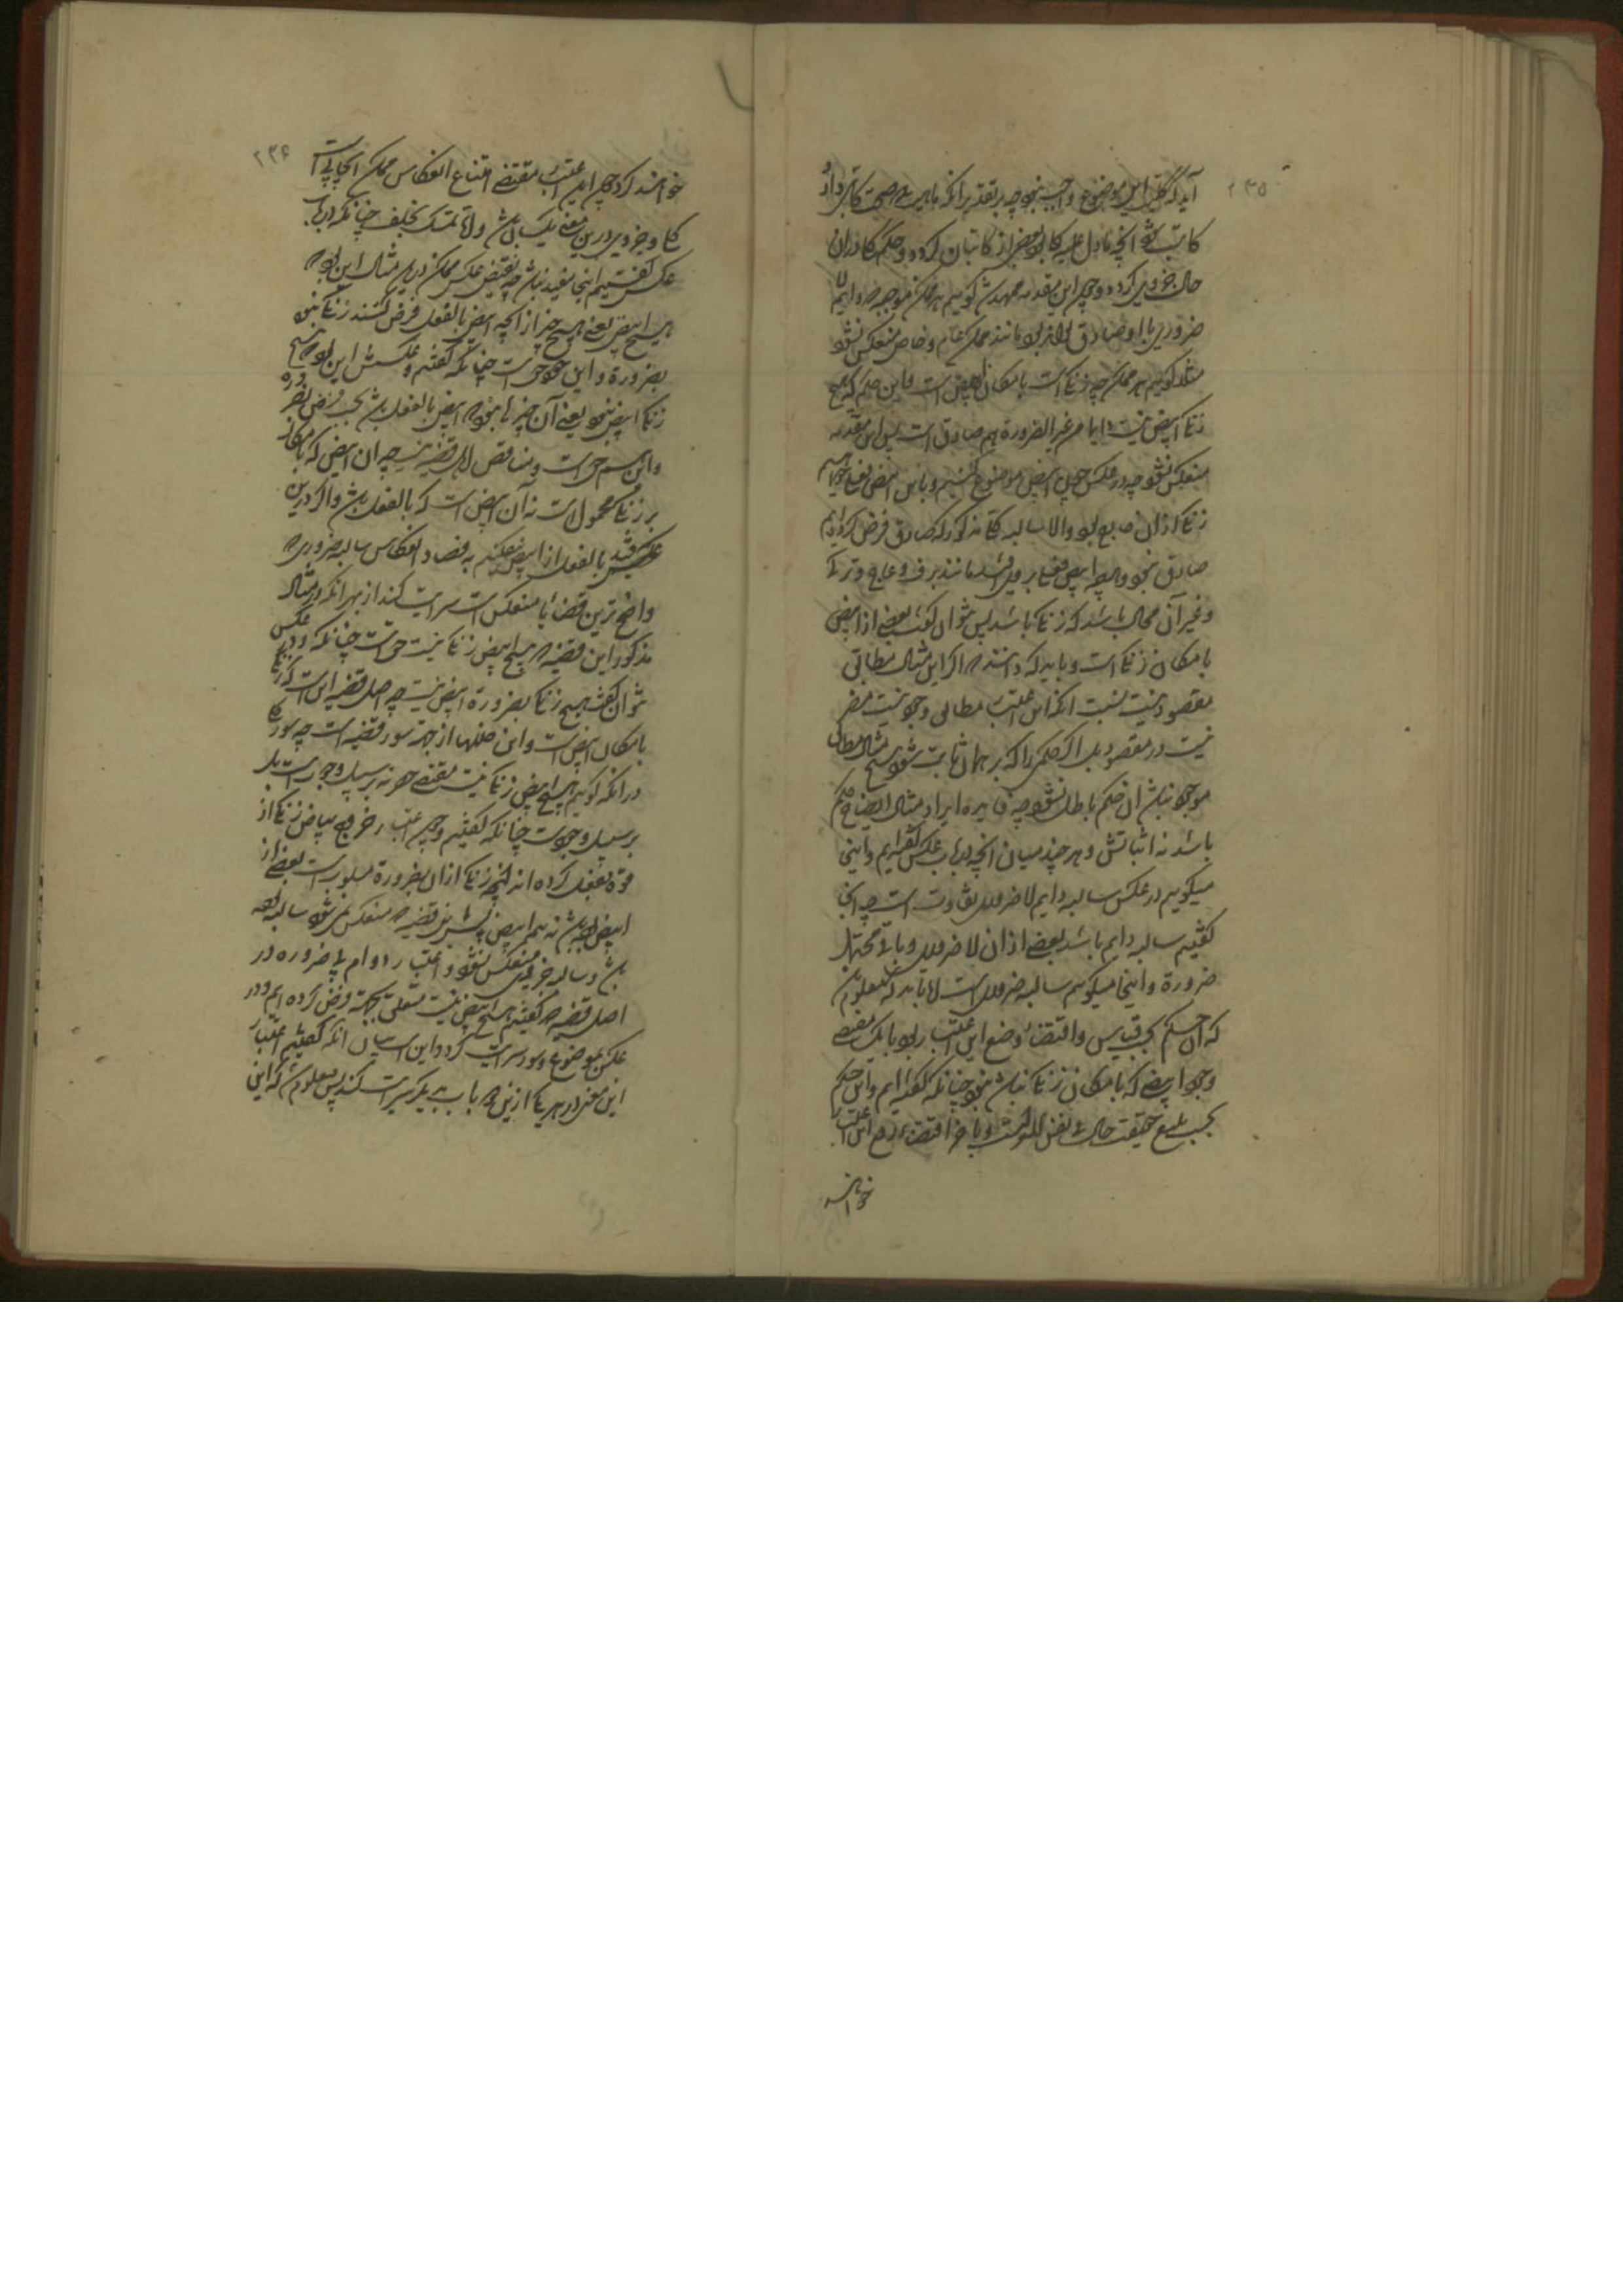 ۲۳۵
کاتب شود آنچه مادل علیه کا بود بعضی از کاتبان کردد و حکم کا دران
حال جزوی کردد و چون این مقدمه ممهد شد کوییم هر ممکن موجبه دایم لا
ضروری با او صادق تواند بود مانند ممکن عام و خاص منعکس نشود
مثلا کوییم هر ممکن چه زنکی است بامکان ابیض است و این حکم که هیچ
زنکی ابیض نیست دایما من غیر الضرورة هم صادق است پس این مقدمه
منعکس نشود چه در عکس چون ابیض موضوع کنیم و باین ابیض
زنکی ازان مانع بود والا سالبه کا مذکور که صادق فرض کرده ایم
صادق نبود و هرچه ابیض بر وی افتد مانند برف و عاج و ترک
و غیر آن محال باشد که زنکی باشد پس نتوان کفت بعضی از ابیض
بامکان زنکی است و باید که دانند که اکر این مثال مطابق
مقصود نیست بسبب آنکه این اعتبار مطابق وجود نیست مضر
نیست در مقصود بل اکر حکمی را که ببرهان ثابت شود هیچ مثال مطابق
موجود نباشد آن حکم باطل نشود چه فایده ایراد مثال ایضاح حکم
باشد نه اثباتش و هر چند میان آنچه در باب عکس کفته ایم و اینجا
میکوییم در عکس سالبه دایم لا ضروری تفاوت است چه آنجا
کفتیم سالبه دایم باشد بعضی ازان لا ضروری و باقی محتمل
ضرورة و اینجا میکوییم سالبه ضروری است اما باید که معلوم باشد
که آن حکم بحسب قیاس و اقتضاء وضع این اعتبار بود با آنکه مقتضی
وجود ابیضی که بامکان زنکی نباشد نبود چنانکه کفته ایم و این حکم
بحسب حقیقت حال فی نفس الامر است و باخر اقتضاء وضع این اعتبار
خواند
۲۳۶
خوانند کرد چون این اعتبار مقتضی امتناع انعکاس ممکن ایجابی است
کلی و جزوی درین معنی یکسان باشد و اما تمسک بخلف چنانکه در باب
عکس کفتیم اینجا مفید نباشد چه نقیض عکس ممکن درین مثال این بود که
هیچ ابیض یعنی هیچ چیز از آنچه ابیض بالفعل فرض کنند زنکی نبود
بضرورة و این خود حق است چنانکه کفتیم و عکسش این بود که هیچ
زنکی ابیض نبود یعنی آن چیزها نبود که ابیض بالفعل باشد بحسب فرض بضرورة
و این هم حق است و مناقض اول قضیه نیست چه آن ابیض که بامکان
بر زنکی محمول است نه آن ابیض است که بالفعل باشد و اکر درین
عکس قید بالفعل از ابیض بیفکنیم بفساد انعکاس سالبه ضروری که
واضح ترین قضایاء منعکس است سرایت کند از بهر آنکه در مثال
مذکور این قضیه که هیچ ابیض زنکی نیست حق است چنانکه و در عکس
نتوان کفت هیچ زنکی بضرورة ابیض نیست چه اصل قضیه این است که زنکی
بامکان ابیض است و این خللها از جهت سور قضیه است چه سور کلی
در آنکه کوییم هیچ ابیض زنکی نیست مقتضی حصر نه بر سبیل وجوب است بل
بر سبیل وجود است چنانکه کفتیم و چون اعتبار خروج بیاض زنکی از
قوه بفعل کرده اند آنچه زنکی ازان بضرورة مسلوب است بعضی از
ابیض بوده باشد نه همه ابیض پس این قضیه که منعکس می شود سالبه کلی
باشد و سالبه جزوی منعکس نشود و اعتبار دوام بی ضروره در
اصل قضیه که کفتیم هیچ ابیض نیست متعلق بجهت فرض کرده ایم و در
عکس بموضوع و سور سرایت کرد و این است بیان آنکه کفتیم اعتبار
این معنی در هر یکی ازین دو باب به دیکر سرایت کند پس معلوم شد که این